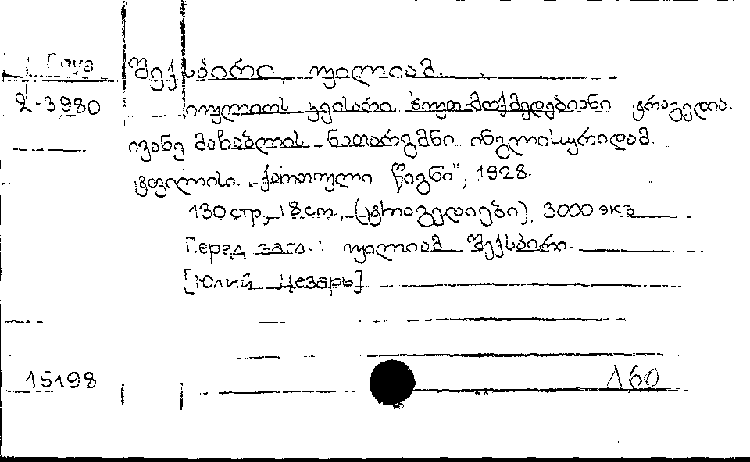 Груз
2-3980
შექსპირი, უილიამ.
იულიოს კეისარი ხუთ-მოქმედებიანი ტრაგედია.
ივანე მაჩაბლის ნათარგმნი ინგლისურიდამ.
ტფილისი. „ქართული წიგნი”, 1928.
130 стр., 18 cm., (ტრაგედიები), 3000 экз.
Перед загл.: უილიამ შექსპირი.
[Юлий Цезарь]
15198
160